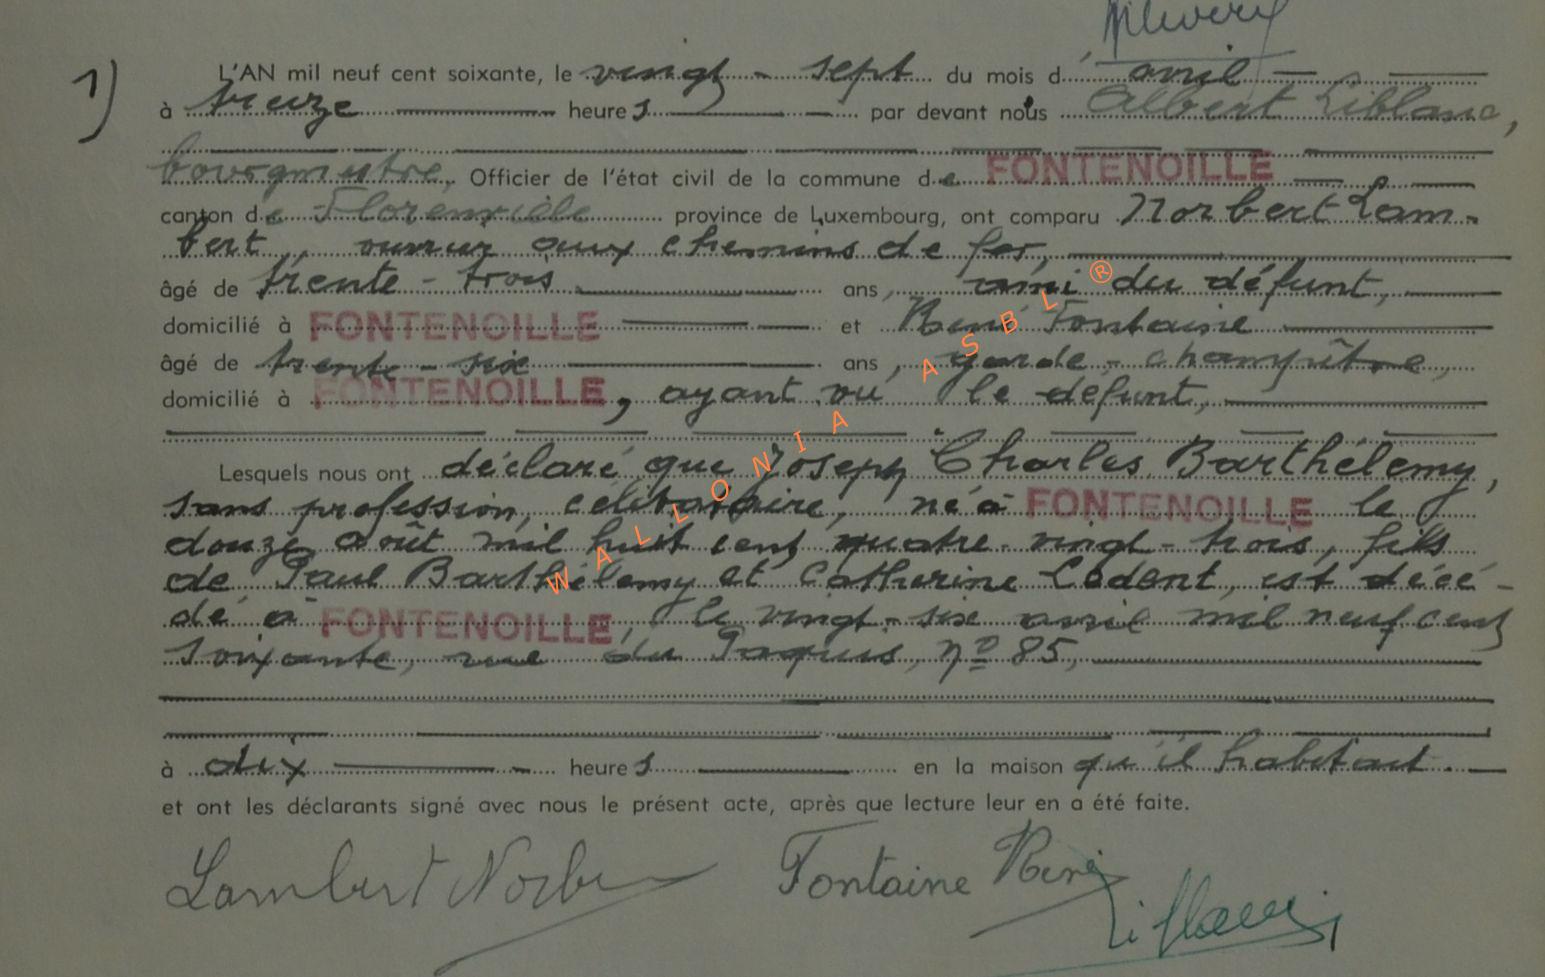 1) L'AN mil neuf cent soixante, le vingt-sept du mois d'avril
à treize heures par devant nous Albert Liblanc,
bourgmestre, Officier de l'état civil de la commune de FONTENOILLE
canton de Florenville province de Luxembourg, ont comparu Norbert Lam-
bert, ouvrier aux chemins de fer,
âgé de trente-trois ans, ami du défunt,
domicilié à FONTENOILLE et René Fontaine
âgé de trente-six ans, garde-champêtre,
domicilié à FONTENOILLE, ayant vu le défunt,
Lesquels nous ont déclaré que Joseph Charles Barthélemy,
sans profession, célibataire, né à FONTENOILLE le
douze août mil huit cent quatre-vingt-trois, fils
de Paul Barthélemy et Catherine Lodent, est décé-
dé à FONTENOILLE, le vingt-six avril mil neuf cent
soixante, rue du Paquis, nº 85,
à dix heures en la maison qu'il habitait.
et ont les déclarants signé avec nous le présent acte, après que lecture leur en a été faite.
Lambert Norbert Fontaine René
WALLONIA ASBL ®